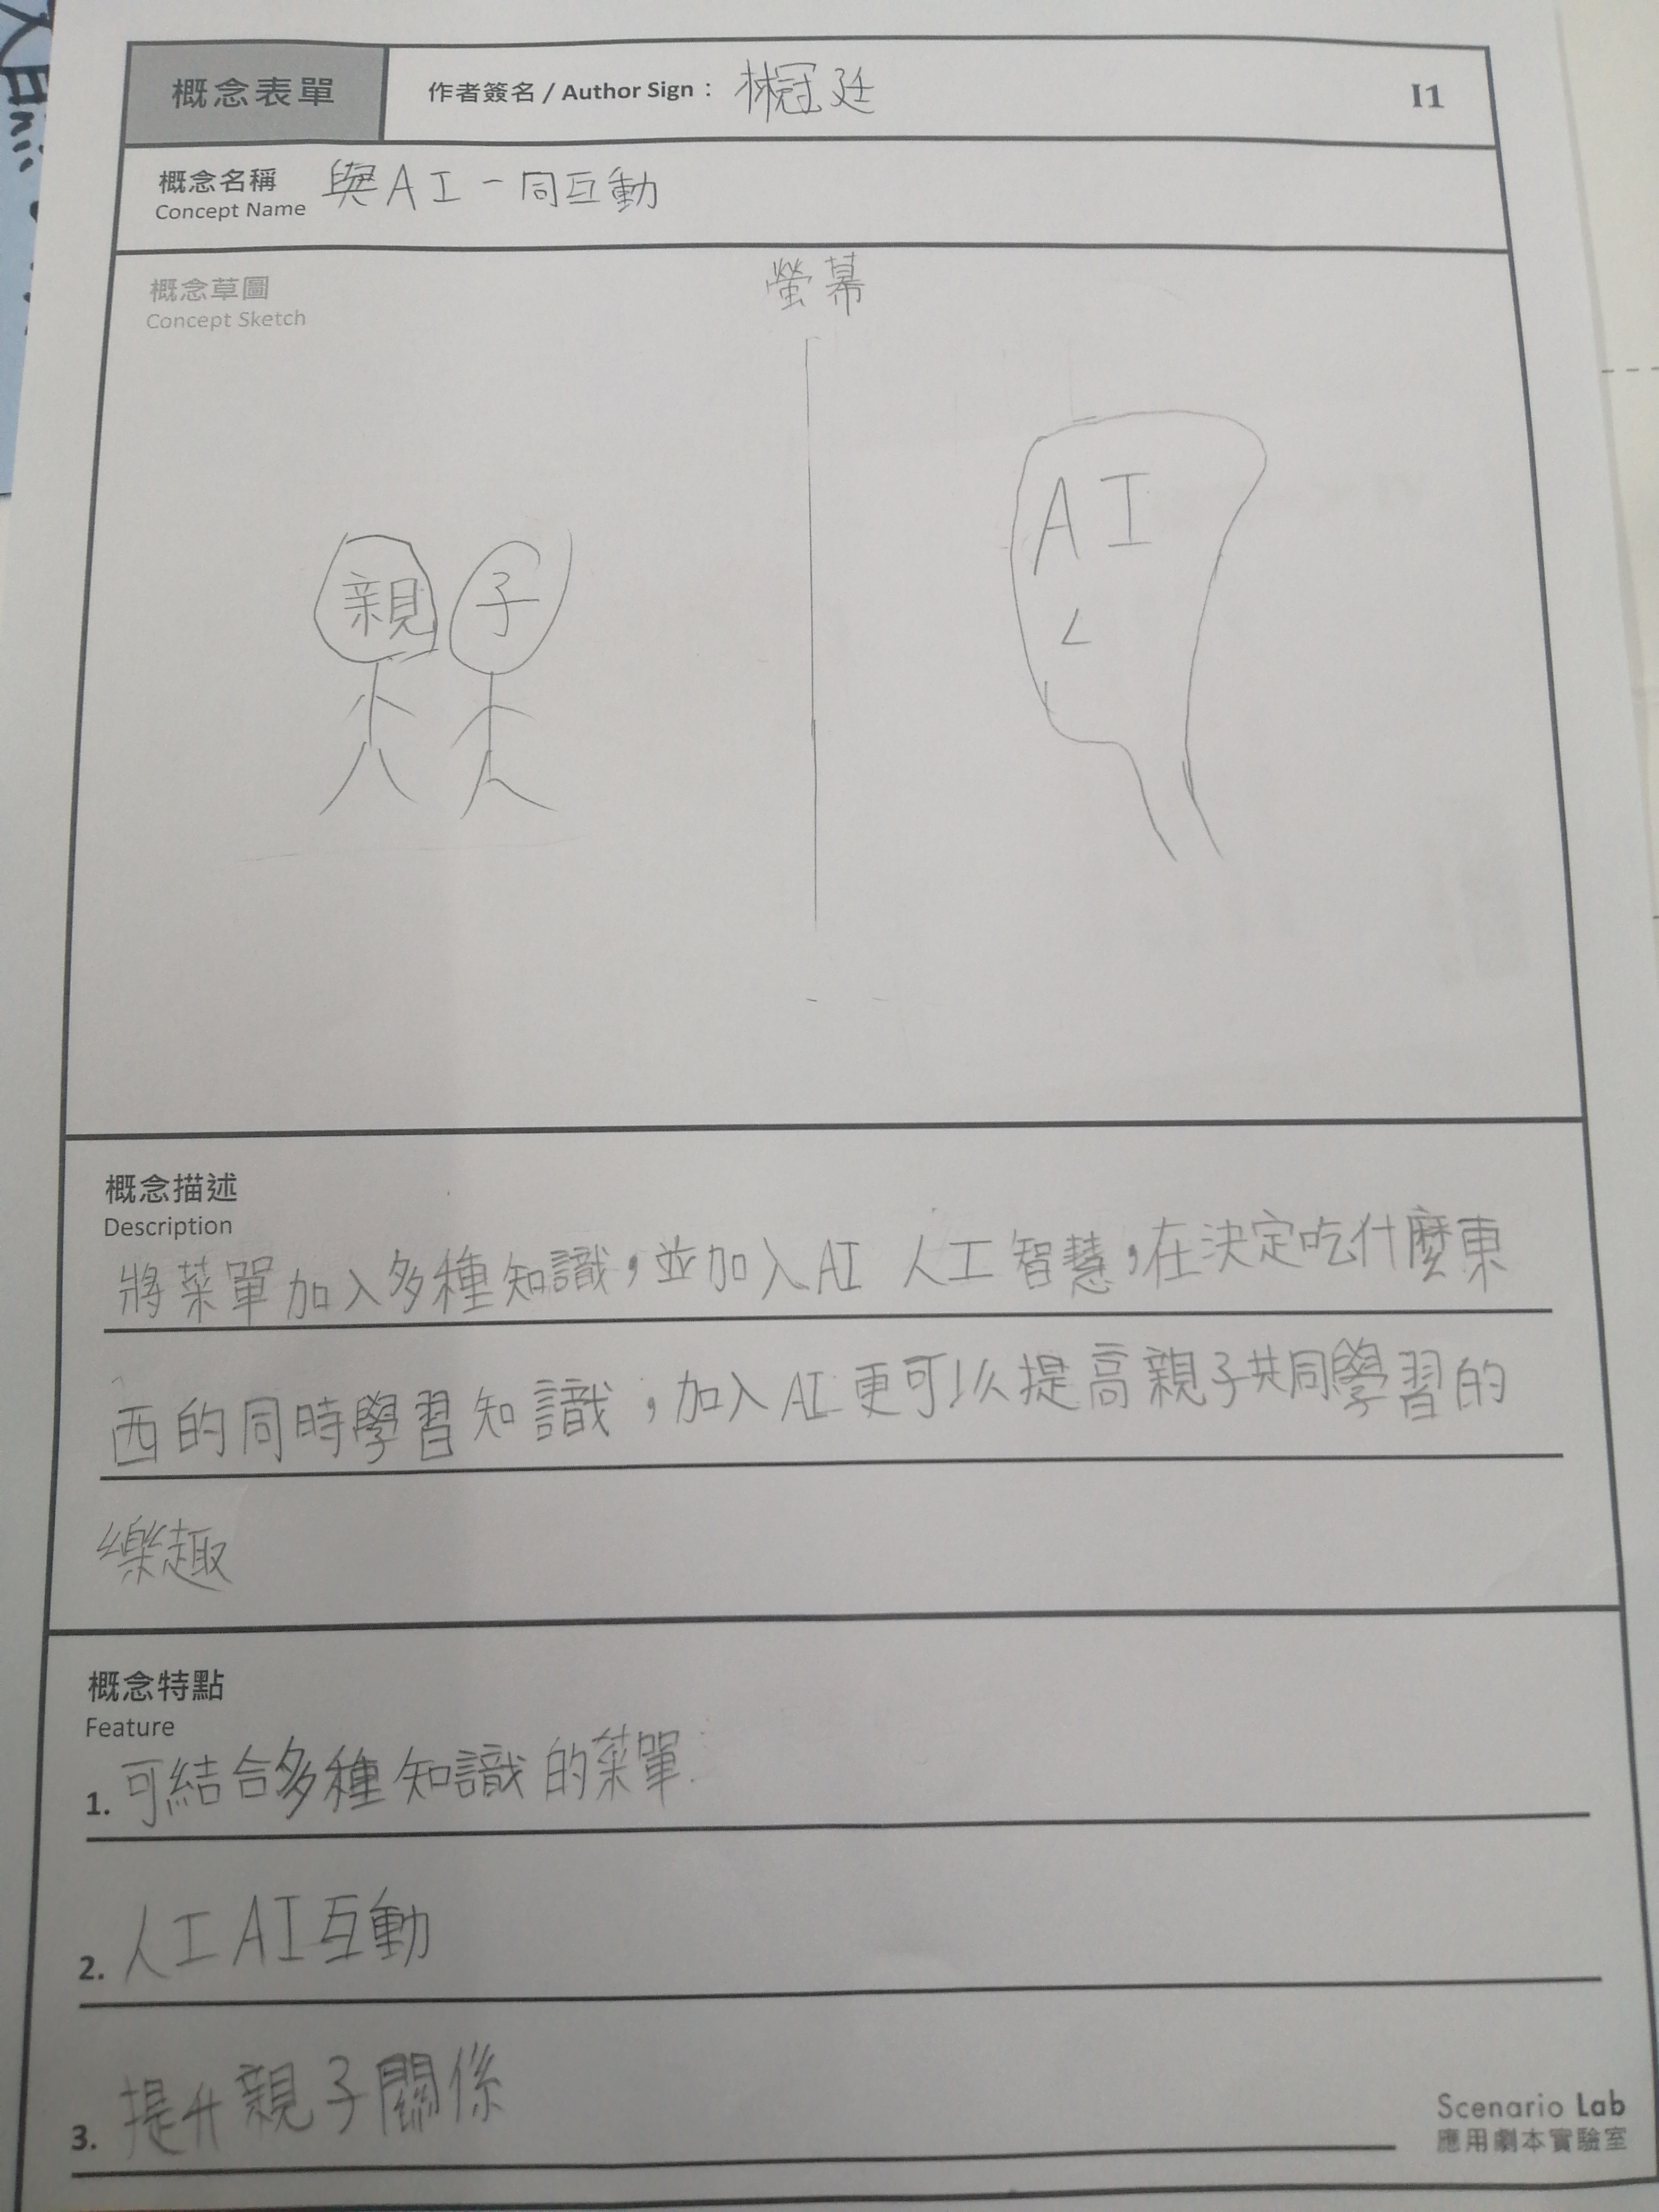 概念表單
作者簽名 / Author Sign： 林冠廷
I1
概念名稱 與AI一同互動
Concept Name
概念草圖
Concept Sketch
螢幕
親 子
AI
概念描述
Description
將菜單加入多種知識，並加入AI 人工智慧，在決定吃什麼東
西的同時學習知識，加入AI更可以提高親子共同學習的
樂趣
概念特點
Feature
1. 可結合多種知識的菜單.
2. 人工AI互動
3. 提升親子關係
Scenario Lab
應用劇本實驗室